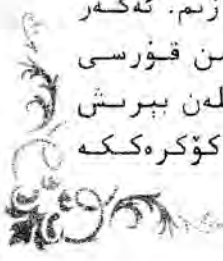 زىم. ئەگەر
سىن قۇرسى
لەن بىرىش
كۆكرەككە